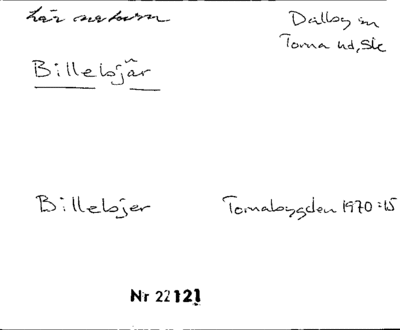 här nedom Dalby sn
Torna hd, Sk
Billebjär
Billebjer Tornabygden 1970:15
Nr 22121